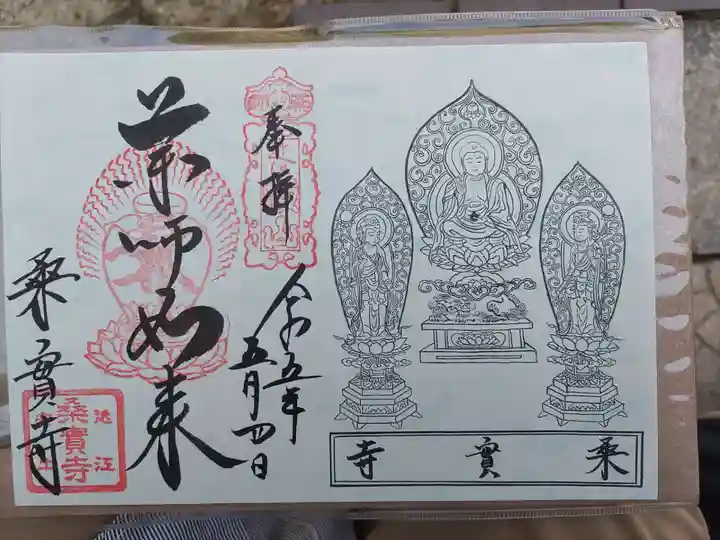 奉拝
令和五年
五月四日
薬師如来
桑實寺
桑實寺
近江
桑實寺